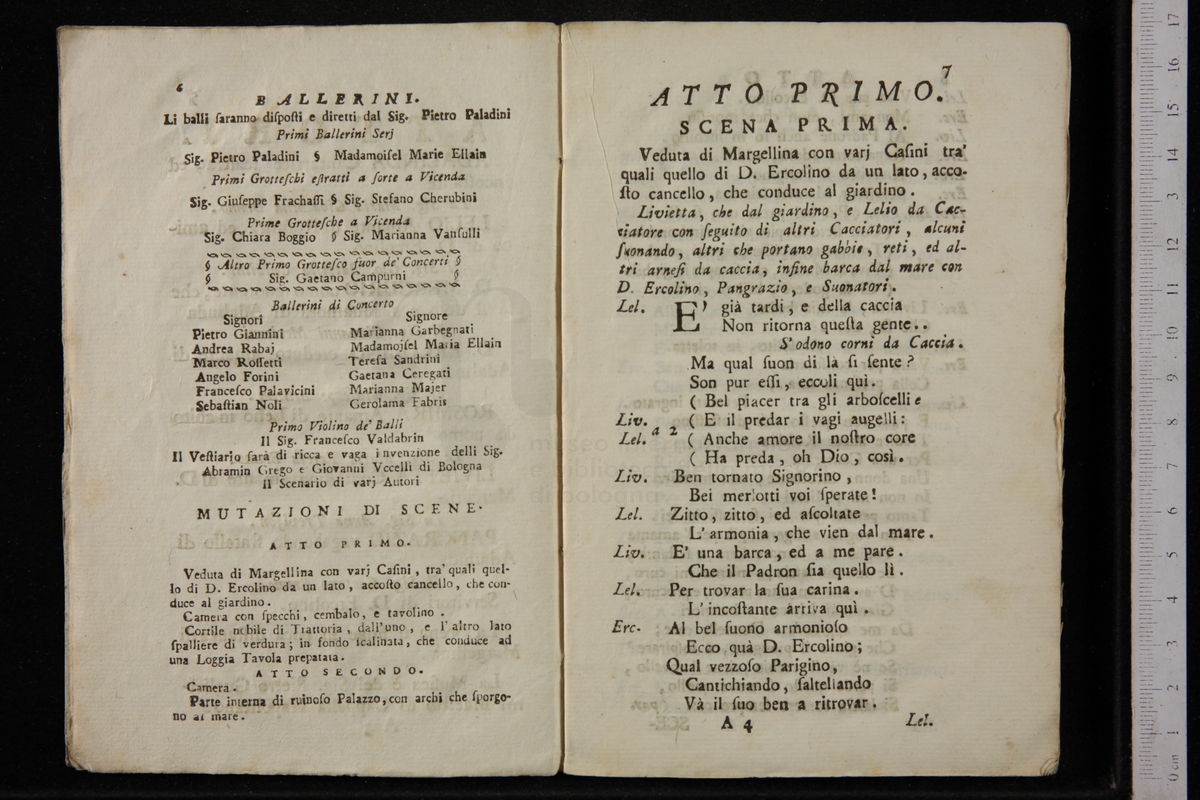 6
BALLERINI.
Li balli ſaranno diſpoſti e diretti dal Sig. Pietro Paladini
Primi Ballerini Serj
Sig. Pietro Paladini § Madamoiſel Marie Ellain
Primi Grotteſchi eſtratti a ſorte a Vicenda
Sig. Giuſeppe Frachaſſi § Sig. Stefano Cherubini
Prime Grotteſche a Vicenda
Sig. Chiara Boggio § Sig. Marianna Vanſulli
§ Altro Primo Grotteſco fuor de' Concerti §
§ Sig. Gaetano Campurni §
Ballerini di Concerto
Signori Signore
Pietro Giannini Marianna Garbegnati
Andrea Rabaj Madamojſel Maria Ellain
Marco Roſſetti Tereſa Sandrini
Angelo Forini Gaetana Ceregati
Franceſco Palavicini Marianna Majer
Sebaſtian Noli Gerolama Fabris
Primo Violino de' Balli
Il Sig. Franceſco Valdabrin
Il Veſtiario ſarà di ricca e vaga invenzione delli Sig.
Abramin Grego e Giovanni Vccelli di Bologna
Il Scenario di varj Autori
MUTAZIONI DI SCENE.
ATTO PRIMO.
Veduta di Margellina con varj Caſini, tra' quali quel-
lo di D. Ercolino da un lato, accoſto cancello, che con-
duce al giardino.
Camera con ſpecchi, cembalo, e tavolino.
Cortile nobile di Trattoria, dall'uno, e l'altro lato
ſpalliere di verdura; in fondo ſcalinata, che conduce ad
una Loggia Tavola prepatata.
ATTO SECONDO.
Camera.
Parte interna di ruinoſo Palazzo, con archi che ſporgo-
no al mare.
7
ATTO PRIMO.
SCENA PRIMA.
Veduta di Margellina con varj Caſini tra'
quali quello di D. Ercolino da un lato, acco-
ſto cancello, che conduce al giardino.
Livietta, che dal giardino, e Lelio da Cac-
ciatore con ſeguito di altri Cacciatori, alcuni
ſuonando, altri che portano gabbie, reti, ed al-
tri arneſi da caccia, infine barca dal mare con
D. Ercolino, Pangrazio, e Suonatori.
Lel. E' già tardi, e della caccia
Non ritorna queſta gente..
S'odono corni da Caccia.
Ma qual ſuon di là ſi ſente?
Son pur eſſi, eccoli quì.
( Bel piacer tra gli arboſcelli e
Liv. ( E il predar i vagi augelli:
Lel. a 2 ( Anche amore il noſtro core
( Ha preda, oh Dio, così.
Liv. Ben tornato Signorino,
Bei merlotti voi ſperate!
Lel. Zitto, zitto, ed aſcoltate
L'armonia, che vien dal mare.
Liv. E' una barca, ed a me pare.
Che il Padron ſia quello lì.
Lel. Per trovar la ſua carina.
L'incoſtante arriva quì.
Erc. Al bel ſuono armonioſo
Ecco quà D. Ercolino;
Qual vezzoſo Parigino,
Cantichiando, ſaltellando
Và il ſuo ben a ritrovar.
A 4 Lel.